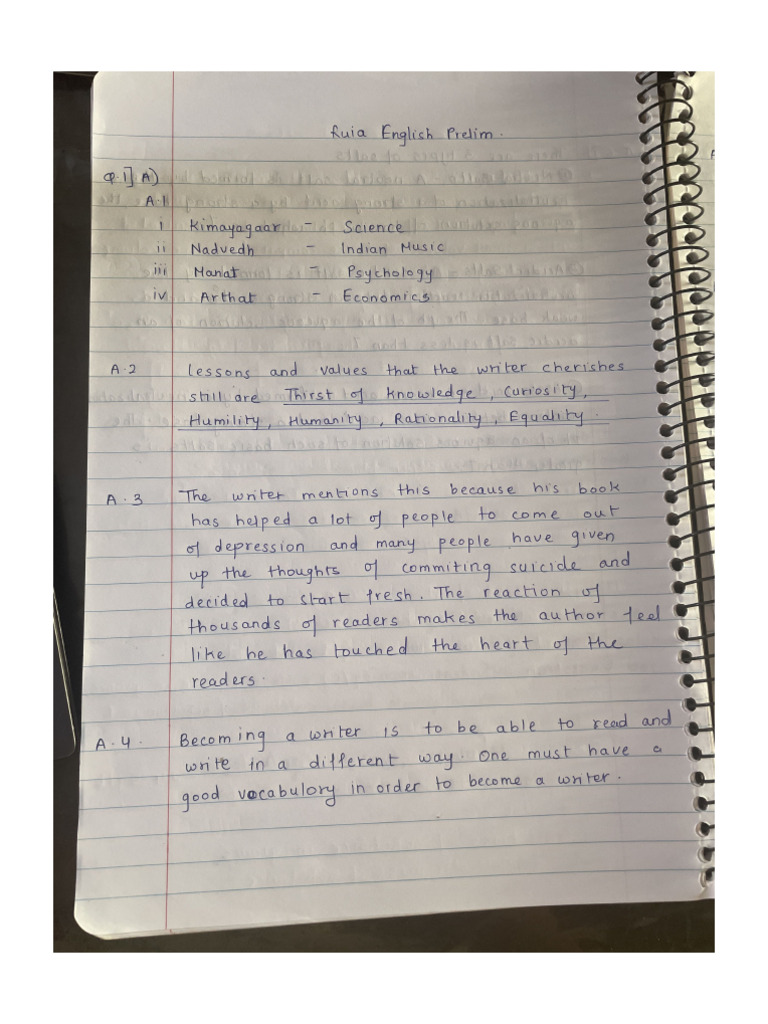 Ruia English Prelim.
Q.1] A)
A.1
i Kimayagaar - Science
ii Nadvedh - Indian Music
iii Manat - Psychology
iv Arthat - Economics
A.2 Lessons and values that the writer cherishes
still are Thirst of knowledge, Curiosity,
Humility, Humanity, Rationality, Equality.
A.3 The writer mentions this because his book
has helped a lot of people to come out
of depression and many people have given
up the thoughts of commiting suicide and
decided to start fresh. The reaction of
thousands of readers makes the author feel
like he has touched the heart of the
readers.
A.4. Becoming a writer is to be able to read and
write in a different way. One must have a
good vocabulory in order to become a writer.